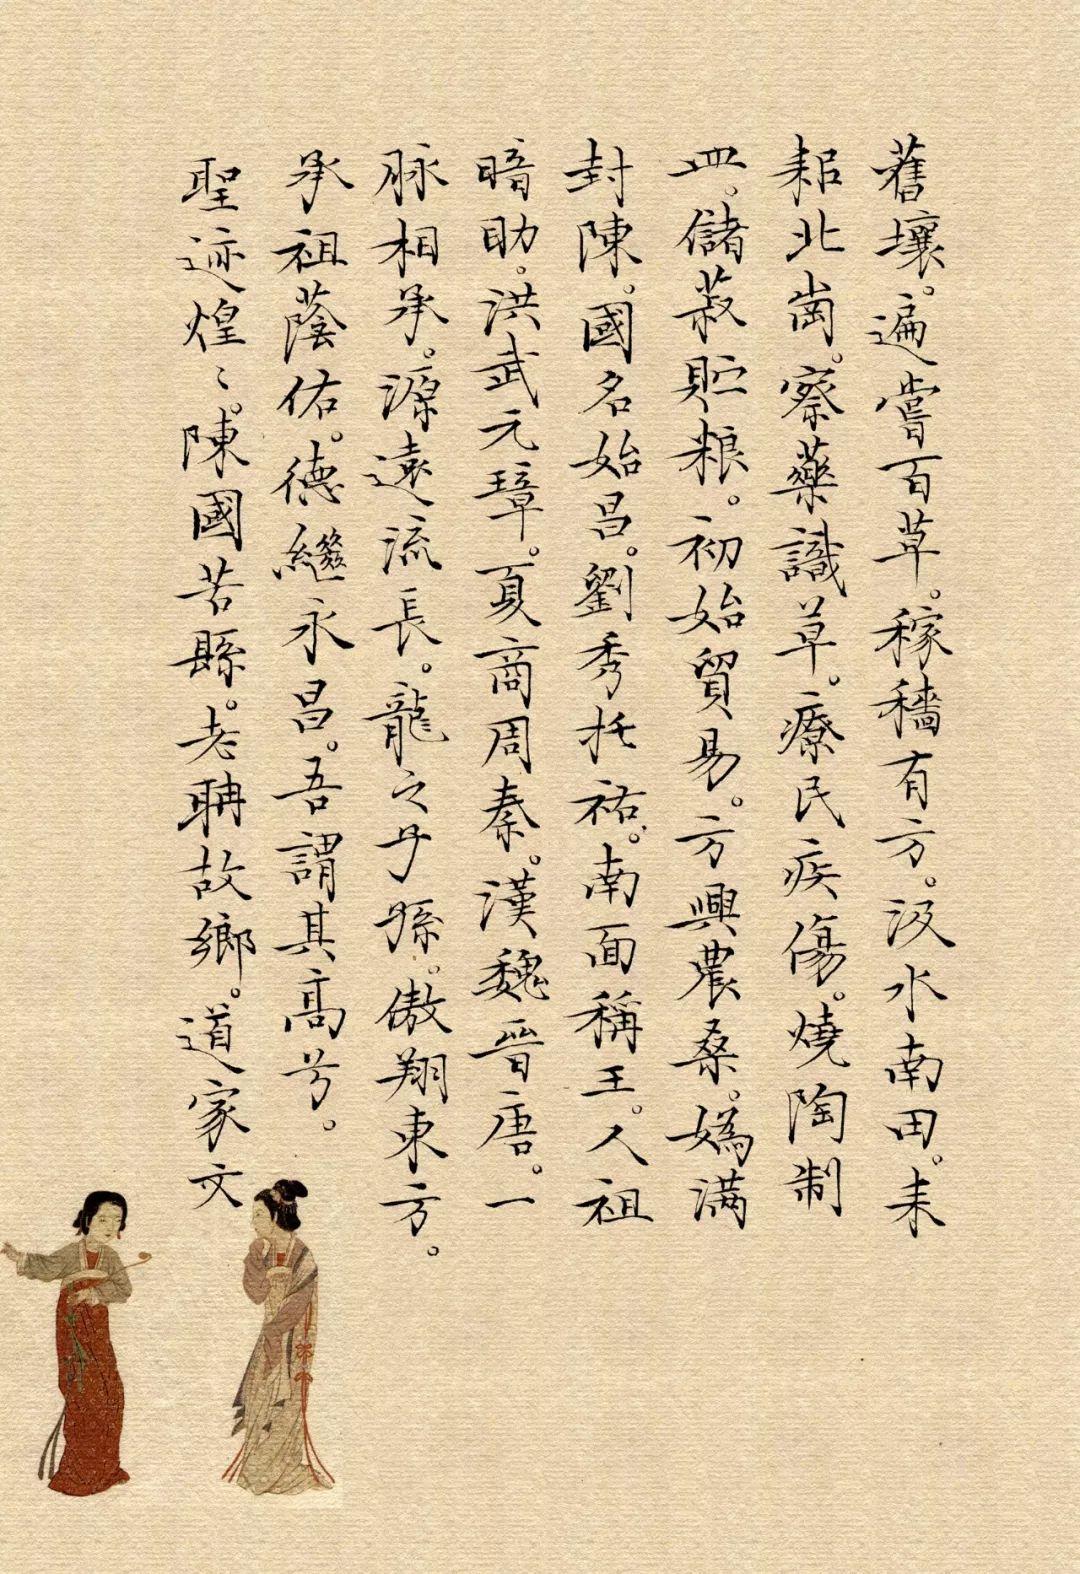 舊壤。遍嘗百草。稼穡有方。汲水南田。耒
耜北崗。察藥識草。療民疾傷。燒陶制
皿。儲菽貯粮。初始貿易。方興農桑。媯满
封陳。國名始昌。劉秀托祐。南面稱王。人祖
暗助。洪武元璋。夏商周秦。漢魏晉唐。一
脉相承。源遠流長。龍之子孫。傲翔東方。
承祖蔭佑。德繼永昌。吾謂其高兮。
聖迹煌〻。陳國苦縣。老聃故鄉。道家文